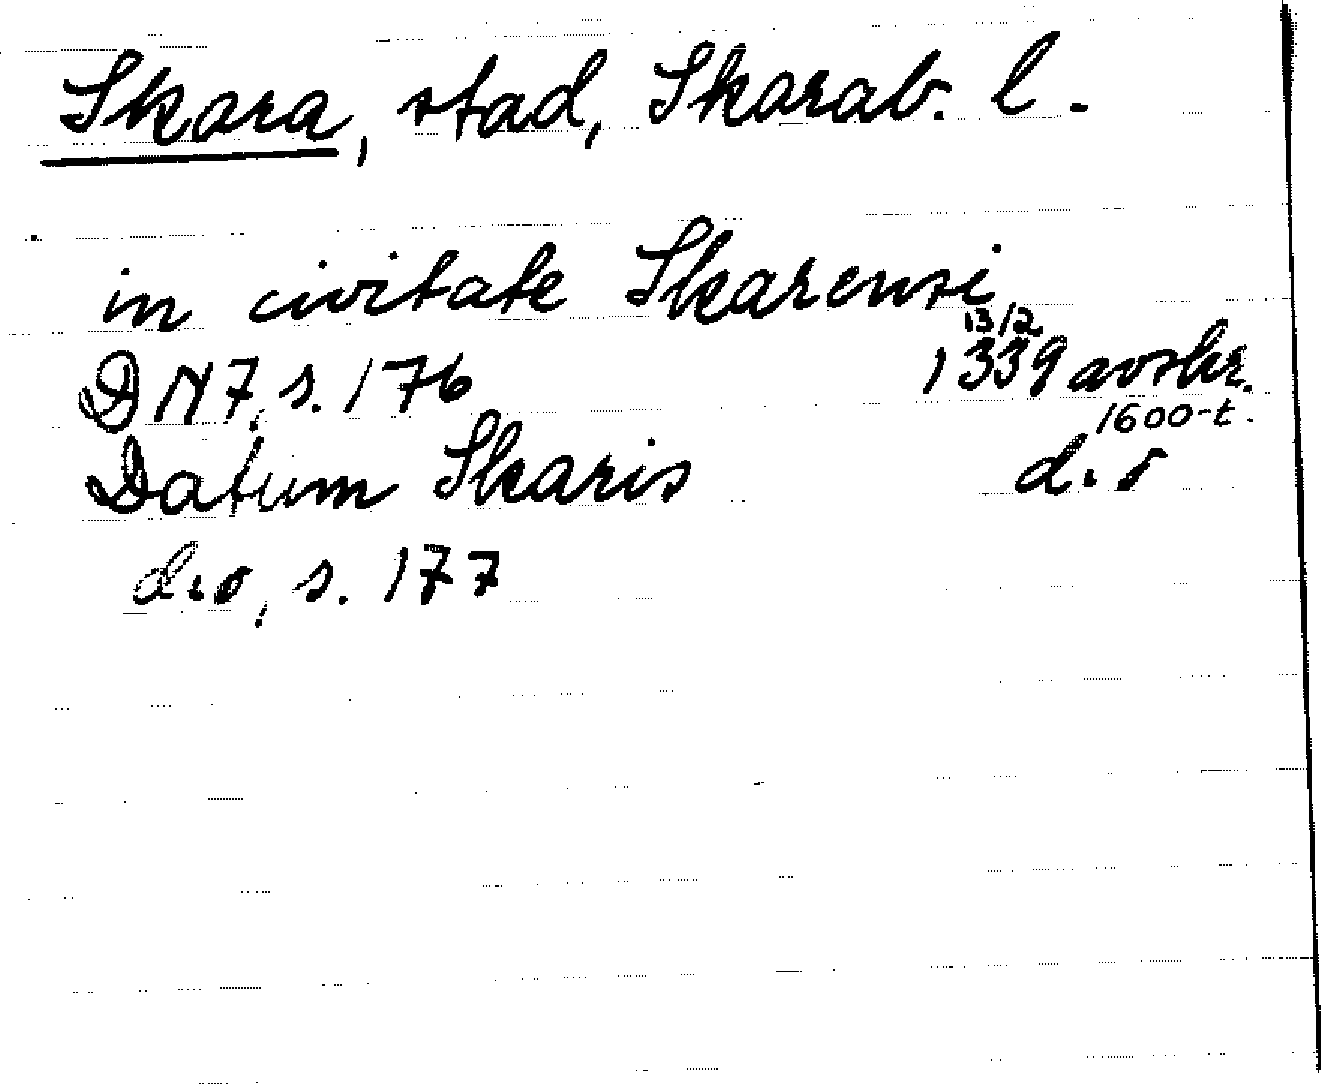 Skara, stad, Skarab. l.
in civitate Skarensi,
13/2
DN 7, s. 176 1339 avskr.
1600-t.
Datum Skaris d. o
d.o, s. 177